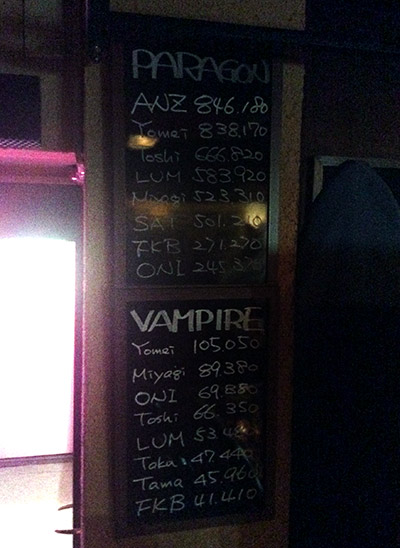 PARAGON
ANZ 846.180
Yomei 838,170
Toshi 666.820
LUM 583.920
Miyagi 523.310
SAI
FKB 271.270
ONI
VAMPIRE
Yomei 105.050
Miyagi 89.380
ONI 69.880
Toshi 66.350
LUM
Toka 47.440
Tama 45.960
FKB 41.410